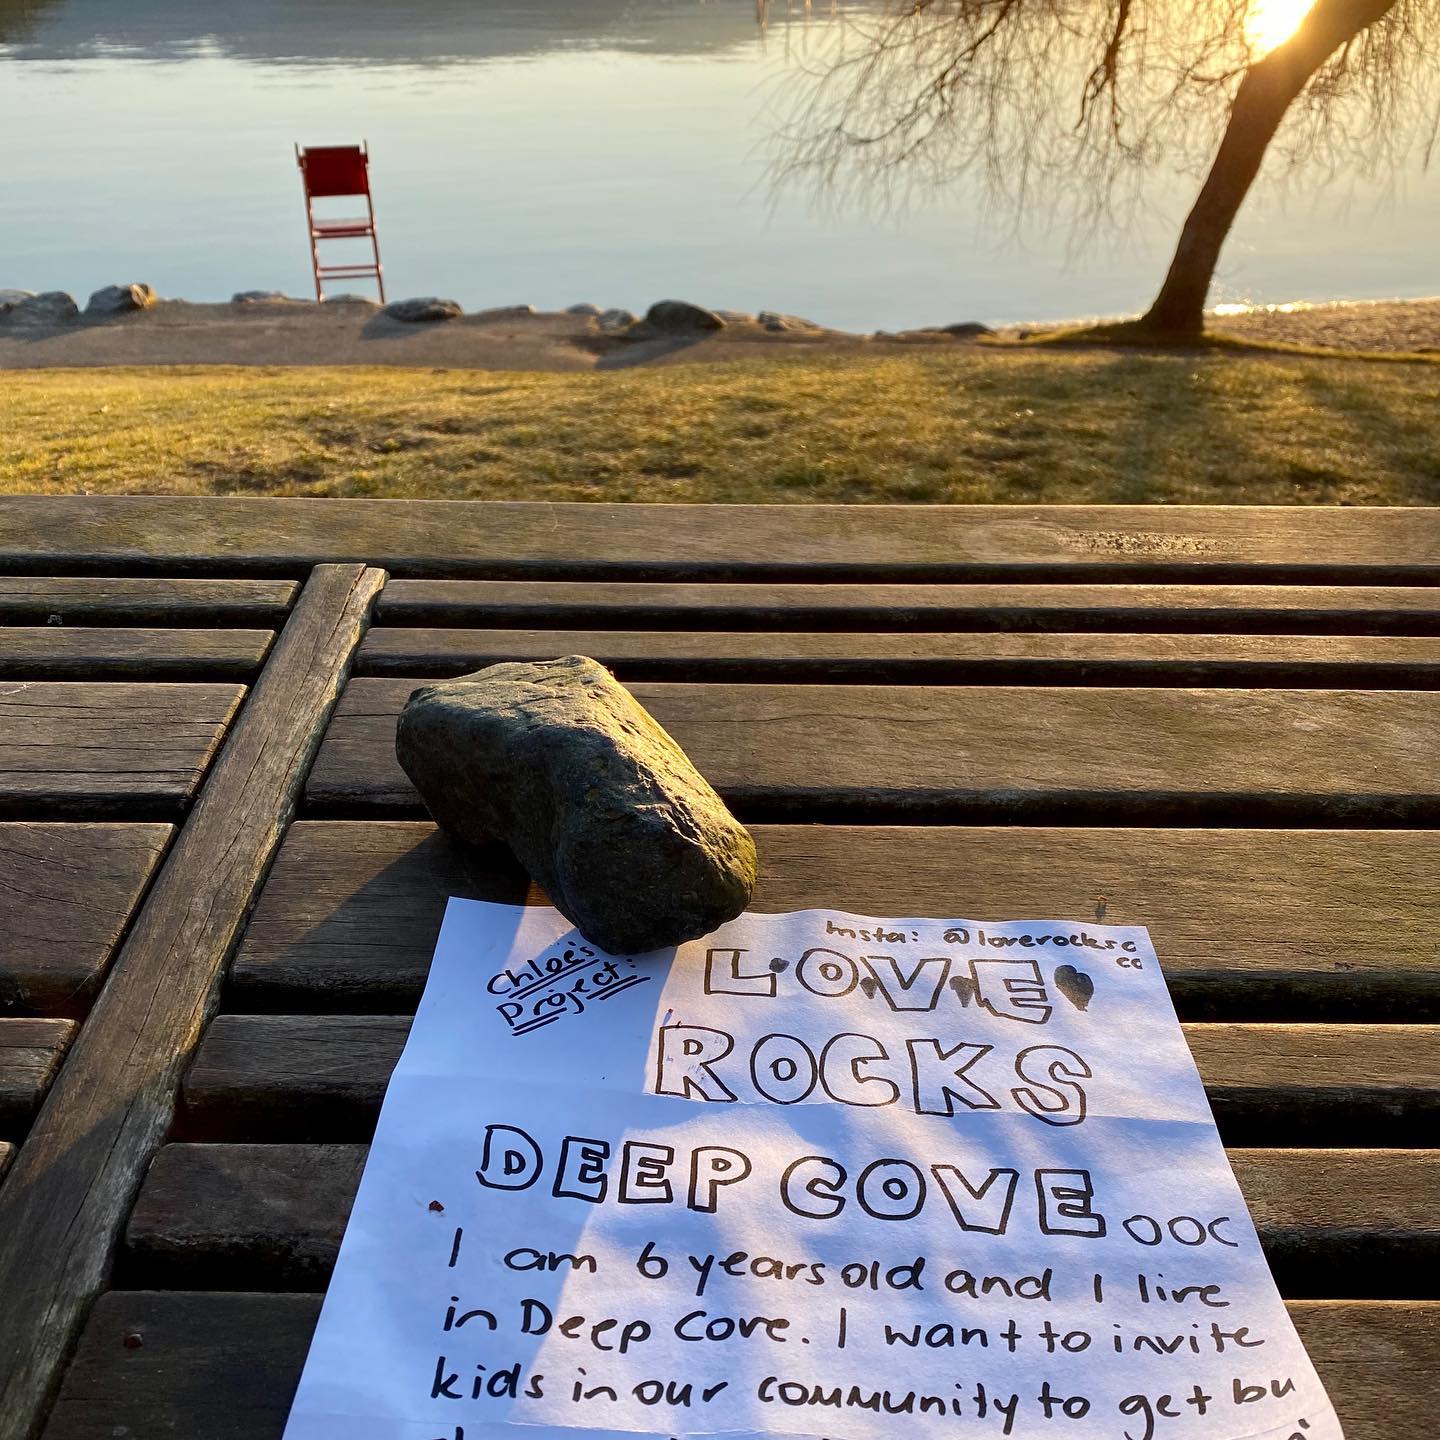 Insta: @loverocksc
cc
Chloe's
project:
LOVE
ROCKS
DEEP COVE...
I am 6 years old and I live
in Deep Cove. I want to invite
kids in our community to get bu